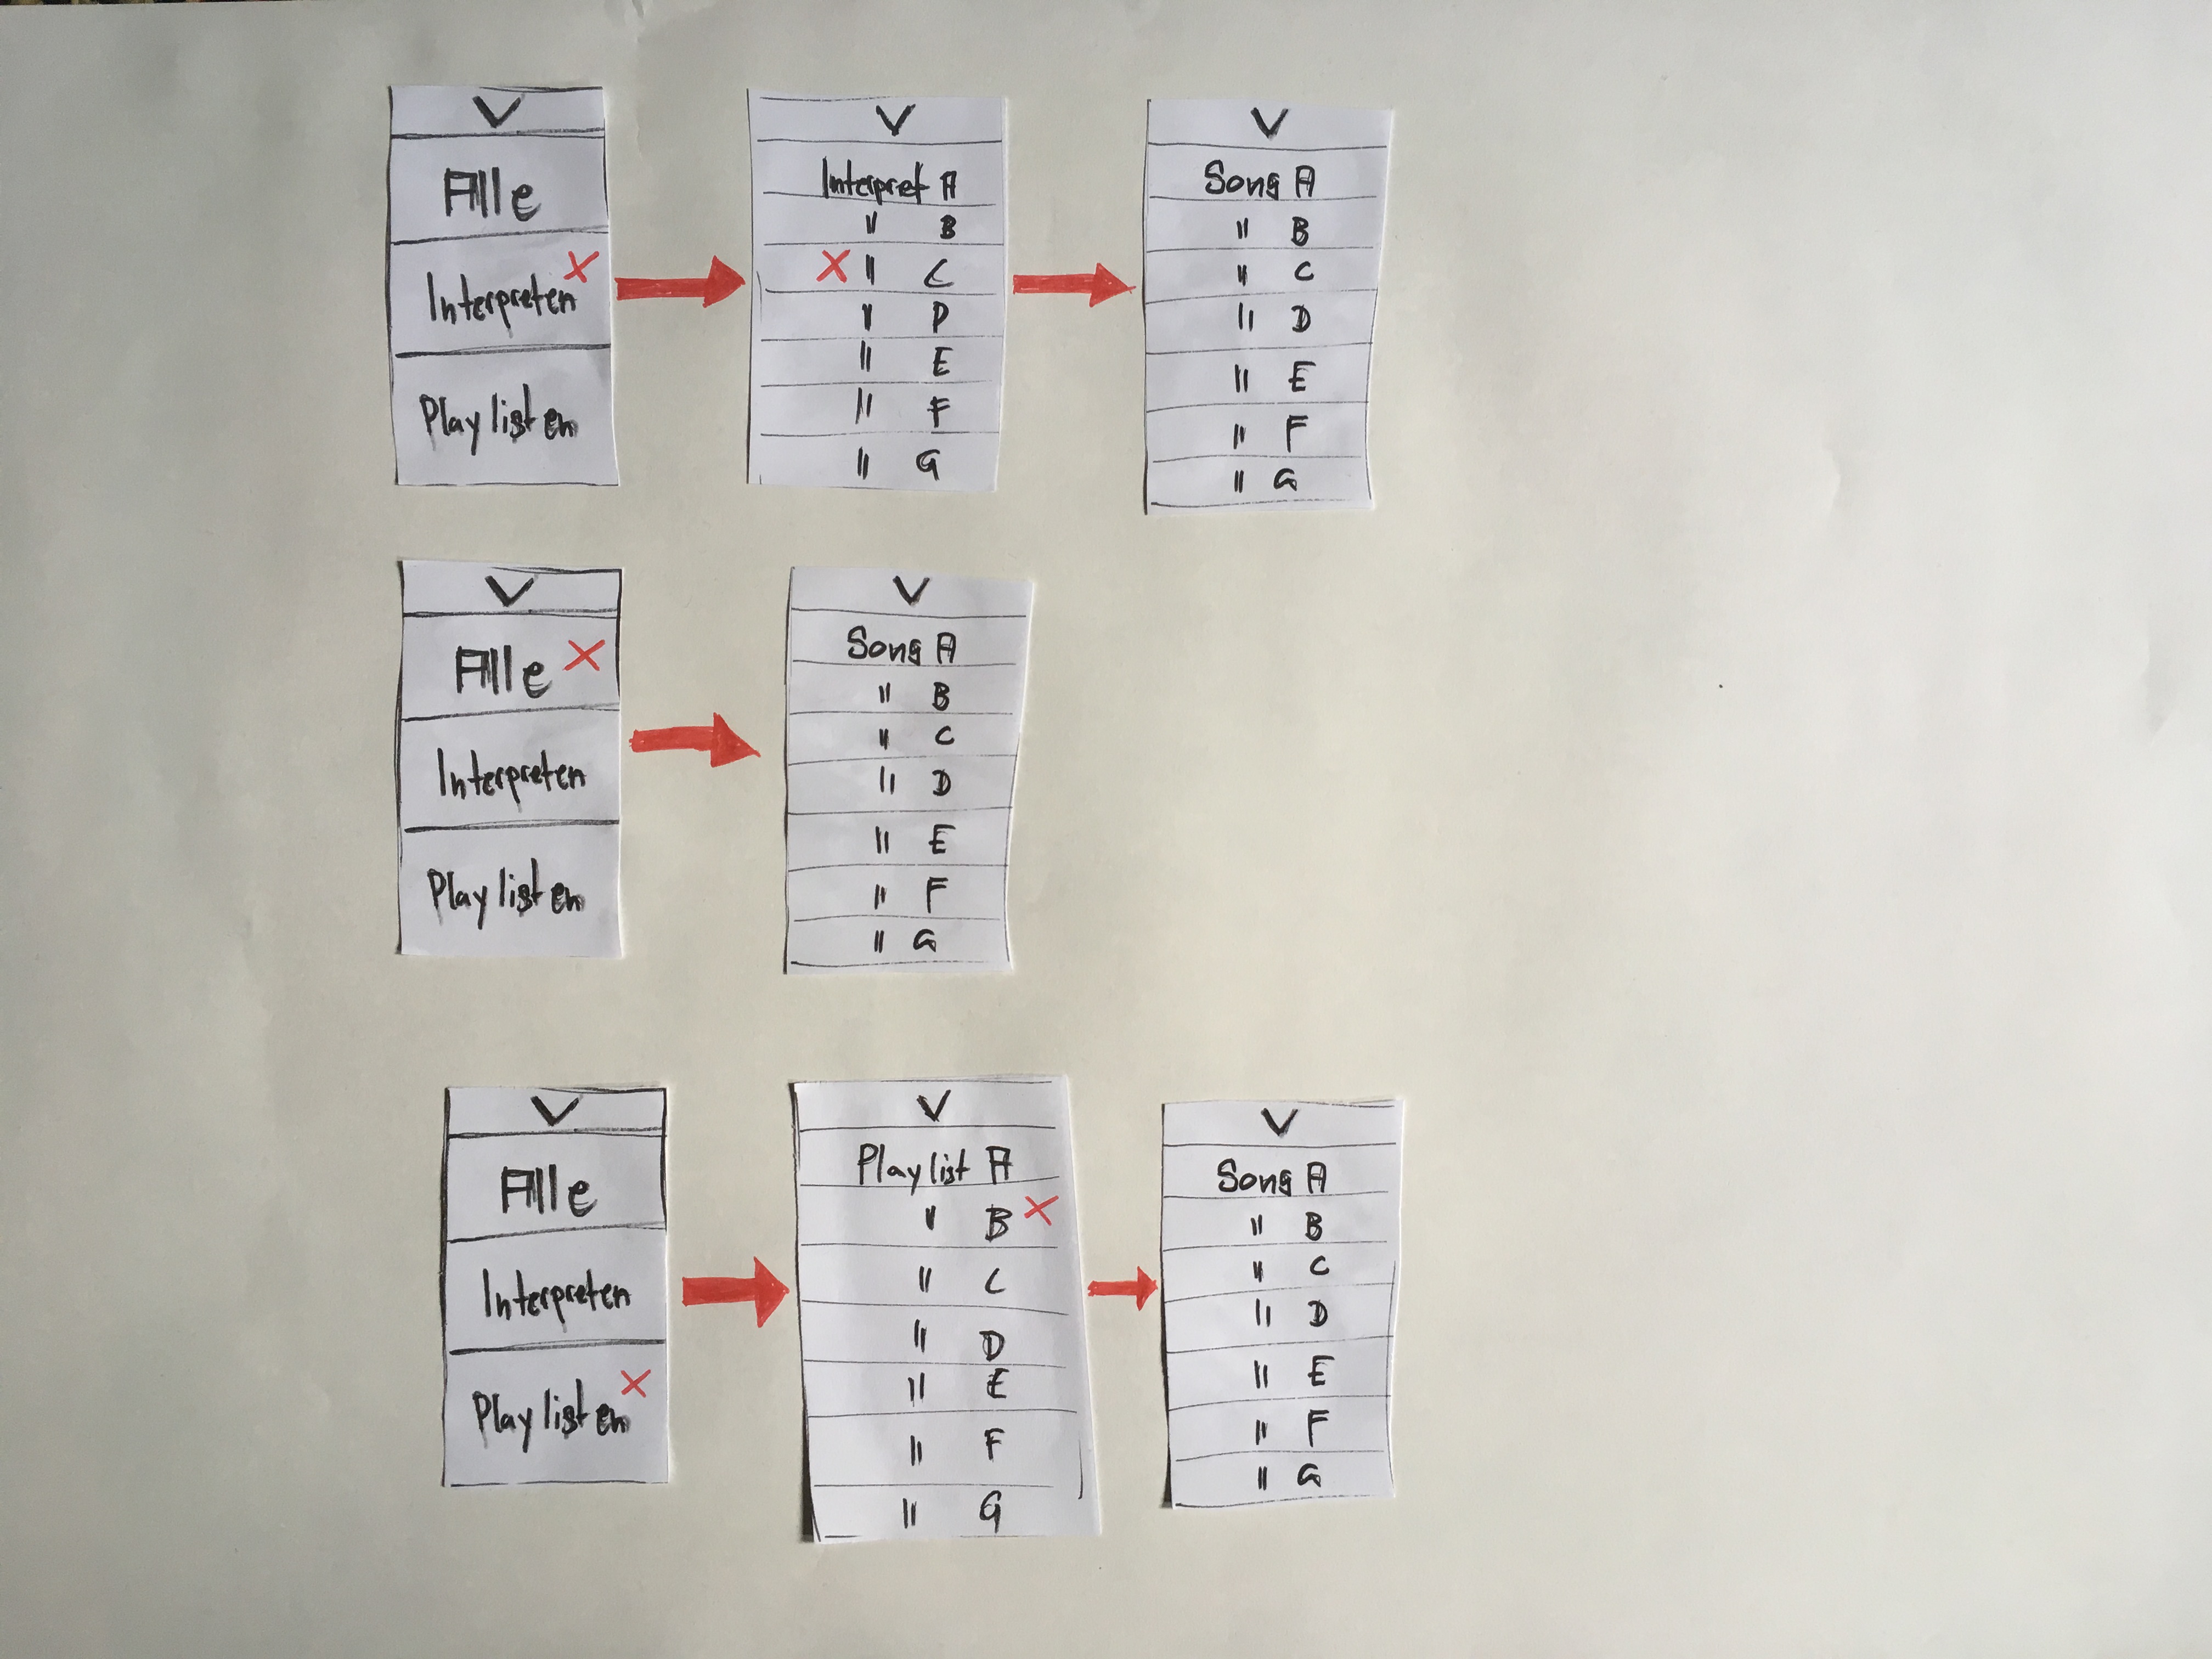 V
Alle
Interpreten X
Playlisten
V
Interpret A
" B
X " C
" D
" E
" F
" G
V
Song A
" B
" C
" D
" E
" F
" G
V
Alle X
Interpreten
Playlisten
V
Song A
" B
" C
" D
" E
" F
" G
V
Alle
Interpreten
Playlisten X
V
Playlist A
" B X
" C
" D
" E
" F
" G
V
Song A
" B
" C
" D
" E
" F
" G